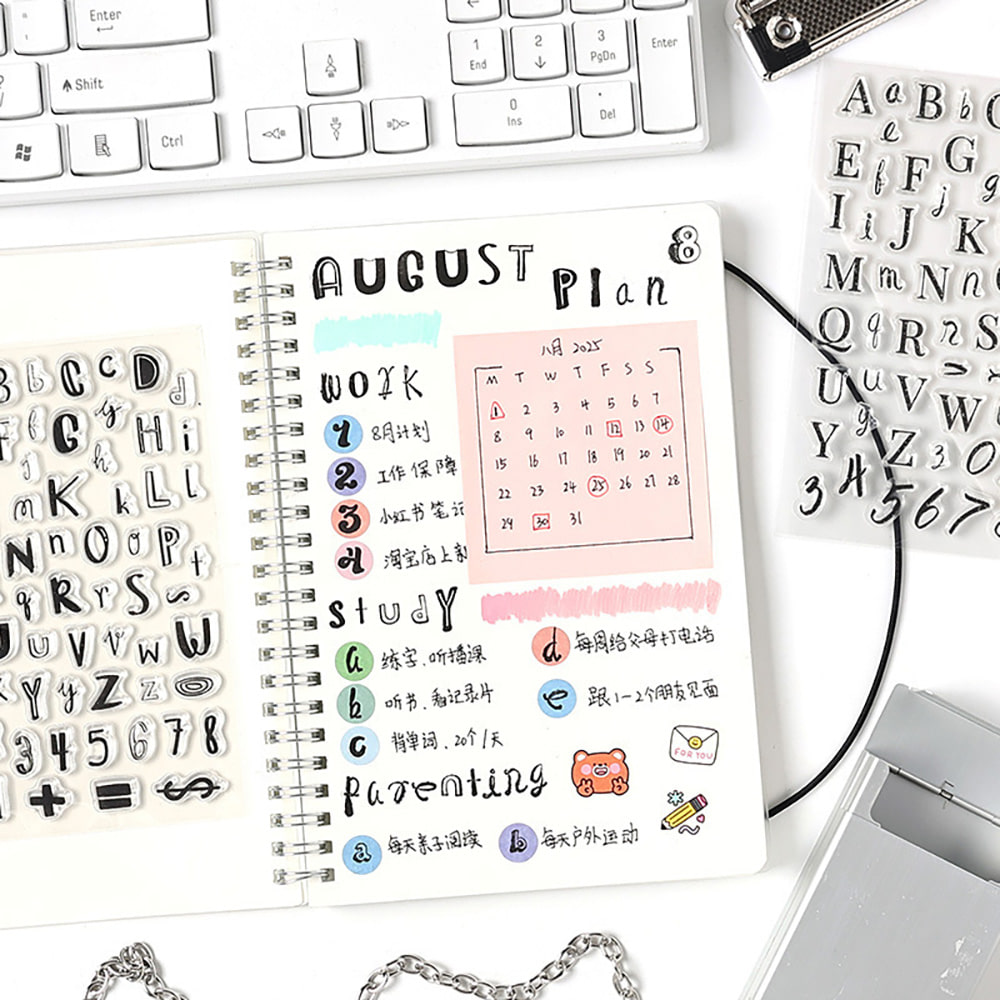 Enter
Shift
Ctrl
1 End
2
3 PgDn
Enter
0 Ins
. Del
AUGUST 8
Plan
八月 2025
M T W T F S S
1 2 3 4 5 6 7
8 9 10 11 12 13 14
15 16 17 18 19 20 21
22 23 24 25 26 27 28
29 30 31
work
1 8月计划
2 工作保障
3 小红书笔记
4 淘宝店上新
study
a 练字、听播课
b 听书、看记录片
c 背单词、20个/天
d 每周给父母打电话
e 跟1-2个朋友见面
FOR YOU
parenting
a 每天亲子阅读
b 每天户外运动
B b C c D d
f G g H i
j h
m K k L l
N n O o P
q R r S s t
U u V v w W
Y y Z z
3 4 5 6 7 8
+ = $
A a B b C
e
E f F G g
I i J j K
M m N N n
Q q R r S
U u V W
Y y Z 3 0
3 4 5 6 7 8